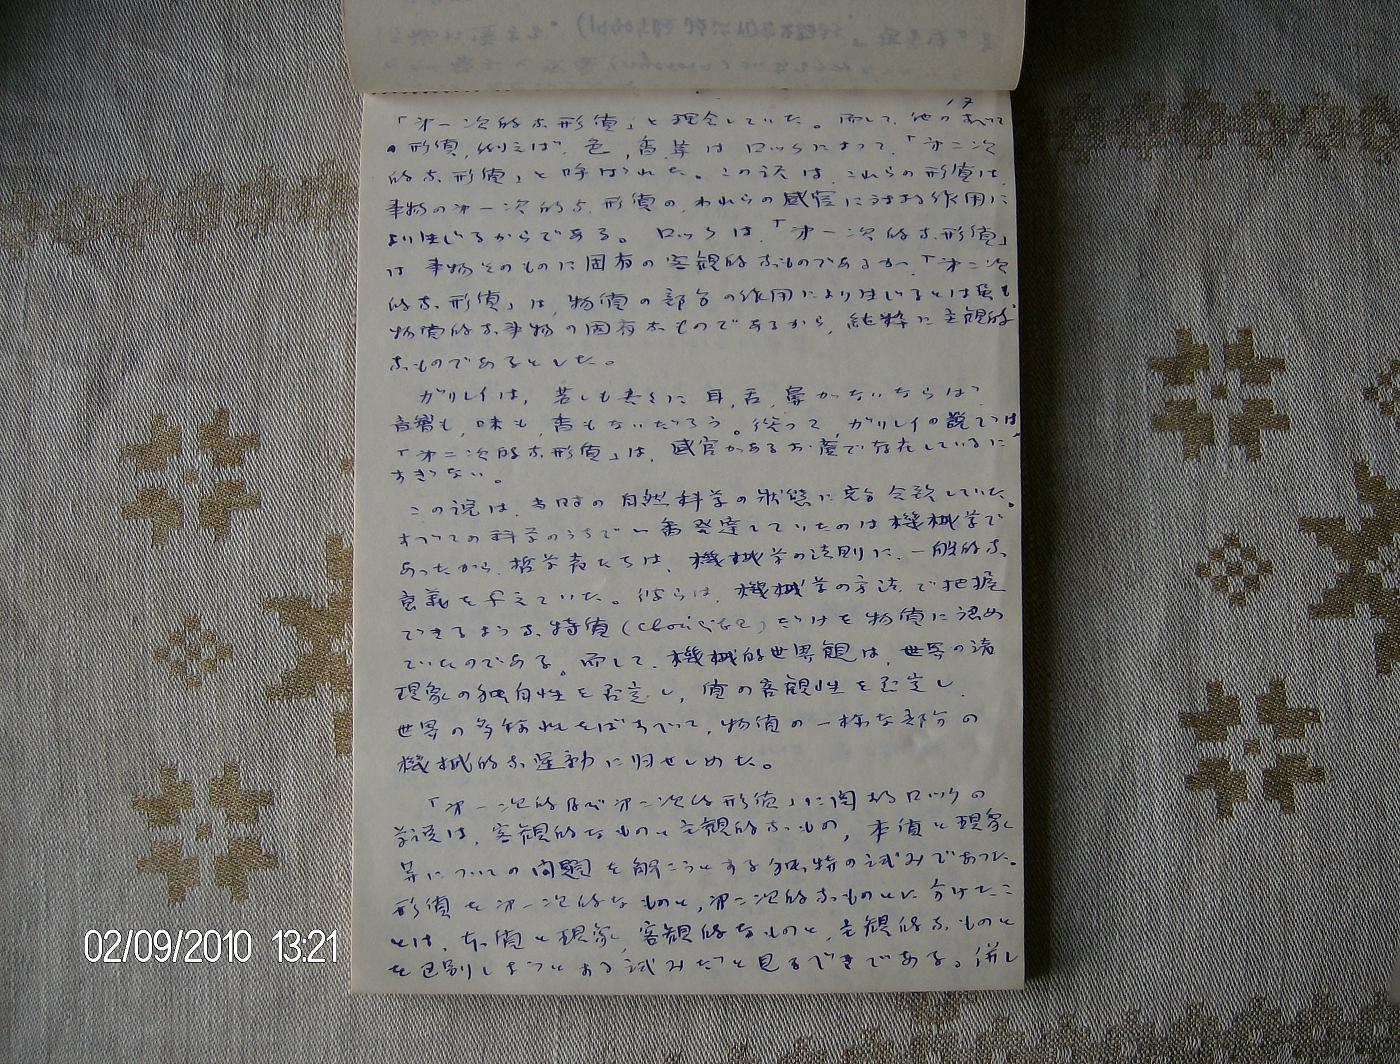 17
「第一次的な形質」と理会していた。而して、他のすべて
の形質、例えば、色、香、等はロックによって、「第二次
的な形質」と呼ばれた。この説は、これらの形質は、
事物の第一次的な形質の、われらの感官に対する作用に
より生じるからである。ロックは、「第一次的な形質」
は事物そのものに固有の客観的なものであるが、「第二次
的な形質」は、物質の部分の作用により生じるとは雖も、
物質的な事物の固有なものであるから、純粋に主観的
なものであるとした。
ガリレイは、若しも我々に耳、舌、鼻がないならば、
音響も、味も、香もないだろう。従って、ガリレイの説では
「第二次的な形質」は、感官があるお蔭で存在しているに
すぎない。
この説は、当時の自然科学の状態に完全合致していた。
すべての科学のうちで一番発達していたのは機械学で
あったから、哲学者たちは、機械学の法則に、一般的な
意義を与えていた。彼らは、機械学の方法で把握
できるような特質( )だけを物質に認め
ていたのである。而して、機械的世界観は、世界の諸
現象の独自性を否定し、質の客観性を否定し、
世界の多様性をばすべて、物質の一様な部分の
機械的な運動に归せしめた。
「第一次的及び第二次的形質」に関するロックの
学説は、客観的なものと主観的なもの、本質と現象
等についての問題を解こうとする独特の試みであった。
形質を第一次的なものと、第二次的なものとに分けたこ
とは、本質と現象、客観的なものと、主観的なものと
を区別しようとする試みだと見るべきである。併し
02/09/2010 13:21